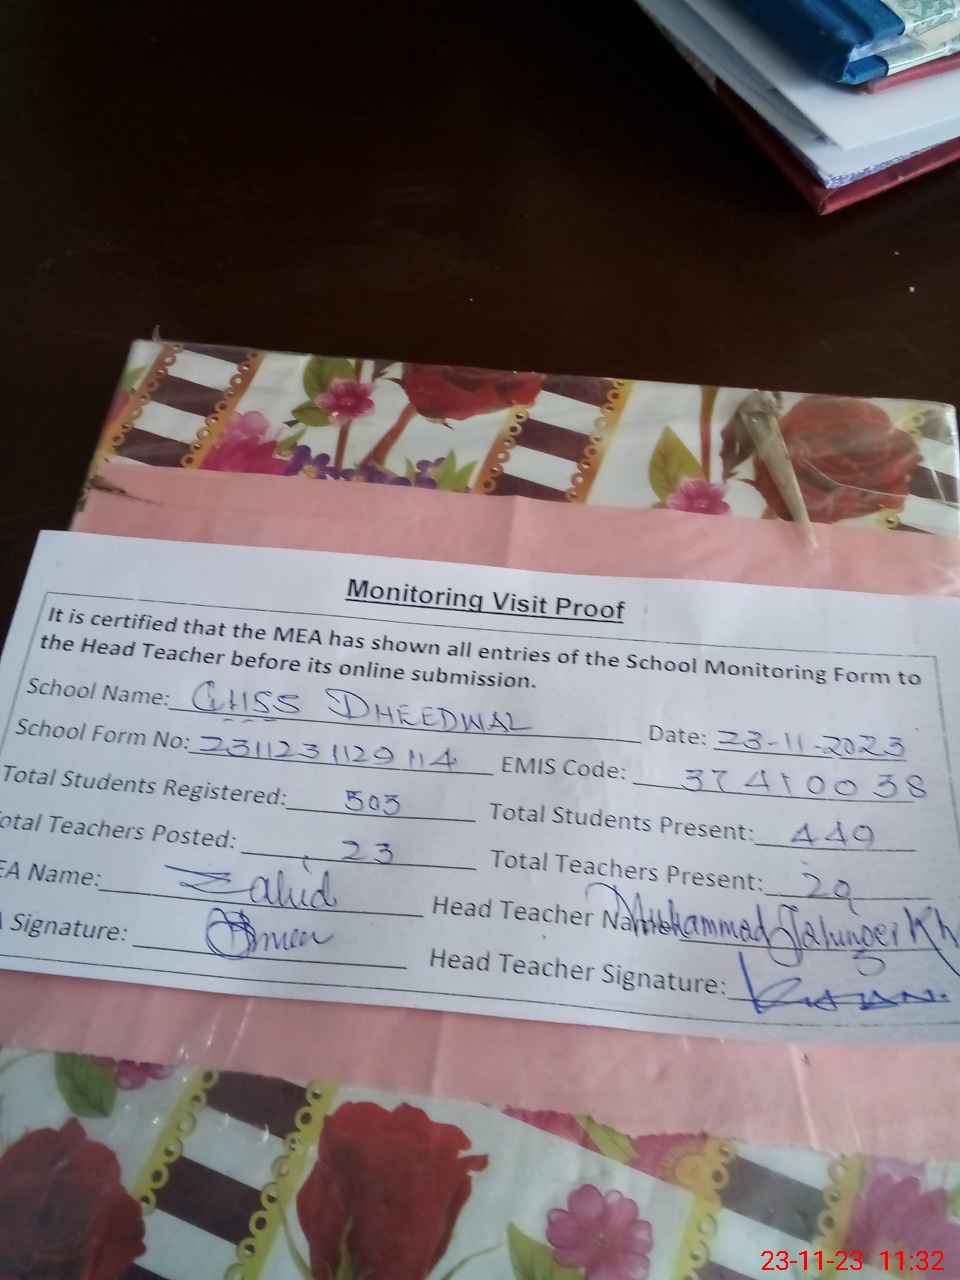 Monitoring Visit Proof
It is certified that the MEA has shown all entries of the School Monitoring Form to
the Head Teacher before its online submission.
School Name: GHSS DHEEDWAL Date: 23-11-2023
School Form No: 2311231129114 EMIS Code: 37410038
Total Students Registered: 503 Total Students Present: 449
otal Teachers Posted: 23 Total Teachers Present:
EA Name: Zahid Head Teacher Name: Muhammad Jahanger Kh
Signature: Head Teacher Signature:
23-11-23 11:32